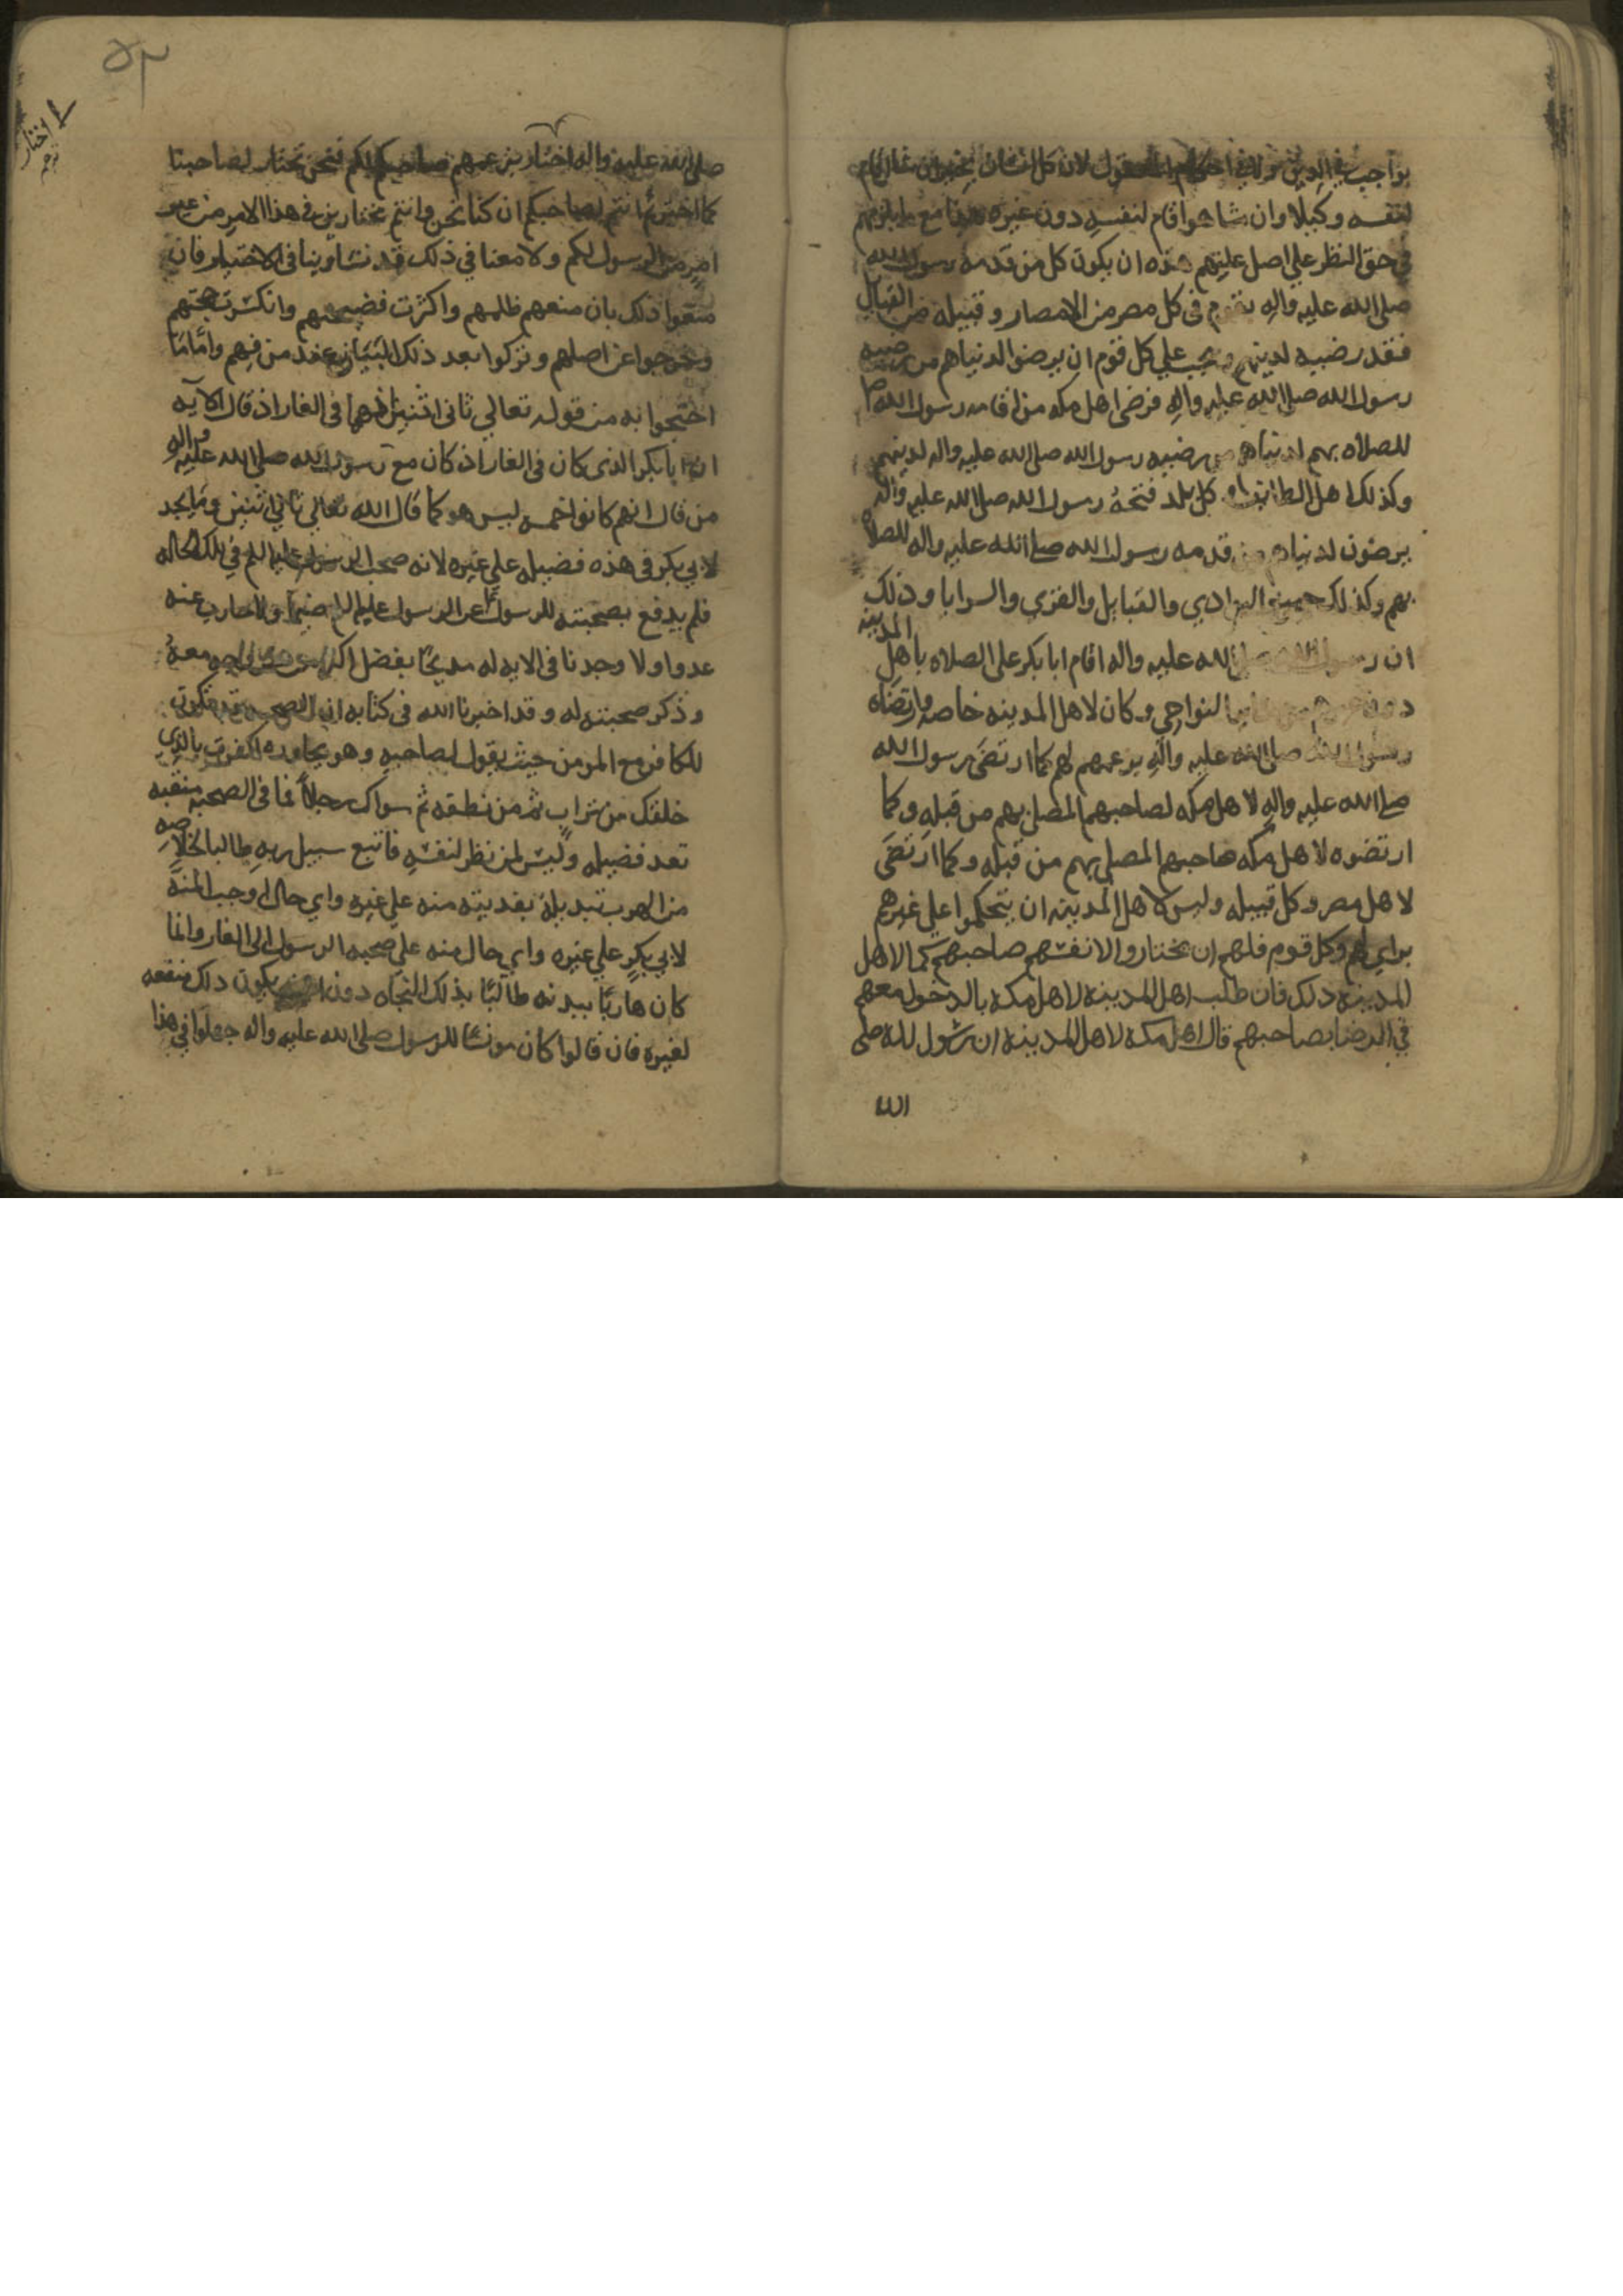 بواجب في الدين ولا في احكام العقول لان كل انسان يخير ان شا اقام
لنفسه وكيلا وان شا هو اقام لنفسه دون غيره مع ما يلزمهم
في حق النظر علي اصل علتهم هذه ان يكون كل من قدمه رسول الله
صلى الله عليه واله يقوم في كل مصر من الامصار وقبيله من القبايل
فقد رضيه لدينهم ويجب علي كل قوم ان يرضوا لدنياهم من رضيه
رسول الله صلى الله عليه واله فرضى اهل مكه من اقامه رسول الله ص
للصلاه بهم لدنياهم من رضيه رسول الله صلى الله عليه واله لدينهم
وكذلك اهل الطايف و كل بلد فتحه رسول الله صلى الله عليه واله
يرضون لدنياهم من قدمه رسول الله صلى الله عليه واله للصلاه
بهم وكذلك جميع البوادي والقبايل والقرى والسرايا وذلك
ان رسول الله صلى الله عليه واله اقام ابا بكر على الصلاه باهل المدينه
دون غيرهم من النواحي وكان لاهل المدينه خاصه وارتضاه
رسول الله صلى الله عليه واله بزعمهم لهم كما ارتضى رسول الله
صلى الله عليه واله لاهل مكه لصاحبهم المصلي بهم من قبله وكما
ارتضوه لاهل مكه صاحبهم المصلي بهم من قبله وكما ارتضى
لاهل مصر وكل قبيله وليس لاهل المدينه ان يتحكموا علي غيرهم
براي لهم وكل قوم فلهم ان يختاروا لانفسهم صاحبهم كما لاهل
المدينه ذلك فان طلب اهل المدينه لاهل مكه بالدخول معهم
في الرضا بصاحبهم قال اهل مكه لاهل المدينه ان رسول لله صلى
الله
٥٣
اختار
بزعم
صلى الله عليه واله اختار بزعمهم صاحبكم لكم فنحن نختار لصاحبنا
كما اخترتم انتم لصاحبكم ان كنا نحن وانتم مختارين في هذا الامر من غير
امر من الرسول لكم ولا معنا في ذلك قد تساوينا في الاختيار فان
منعوا ذلك بان منعهم ظلمهم واكثرت فضيحتهم وانكسرت حجتهم
وخرجوا عن اصلهم وتركوا بعد ذلك البيان عند من فهم واما ما
احتجوا به من قوله تعالي ثاني اثنين اذ هما في الغار اذ قال الآيه
ان ابا بكر الذي كان في الغار اذ كان مع رسول الله صلى الله عليه واله
من قال انهم كانوا خمسه ليس هو كما قال الله تعالي ثاني اثنين وما يجد
لابي بكر في هذه فضيله علي غيره لانه صحب الرسول عليه السلم في تلك الحاله
فلم يدفع بصحبته للرسول عن الرسول عليه السلم ضيما ولا حارب عنه
عدوا ولا وجدنا في الايه له مديحا بفضل اكثر من معه
وذكر صحبته له وقد اخبرنا الله في كتابه ان الصحبه قد تكون
للكافر مع المومن حيث يقول لصاحبه وهو يحاوره اكفرت بالذي
خلقك من تراب ثم من نطفه ثم سواك رجلا فما في الصحبه منقبه
تعد فضيله وليس لمن نظر لنفسه فاتبع سبيل ربه طالبا لخلاصه
من الهرب بتبديله بفديته منه علي غيره واي حال اوجب المنه
لابي بكر علي غيره واي حال منه علي صحبه الرسول الى الغار وانما
كان هاربا ببدنه طالبا بذلك النجاه دون ان يكون ذلك منفعه
لغيره فان قالوا كان مونسا للرسول صلى الله عليه واله جهلوا في هذا